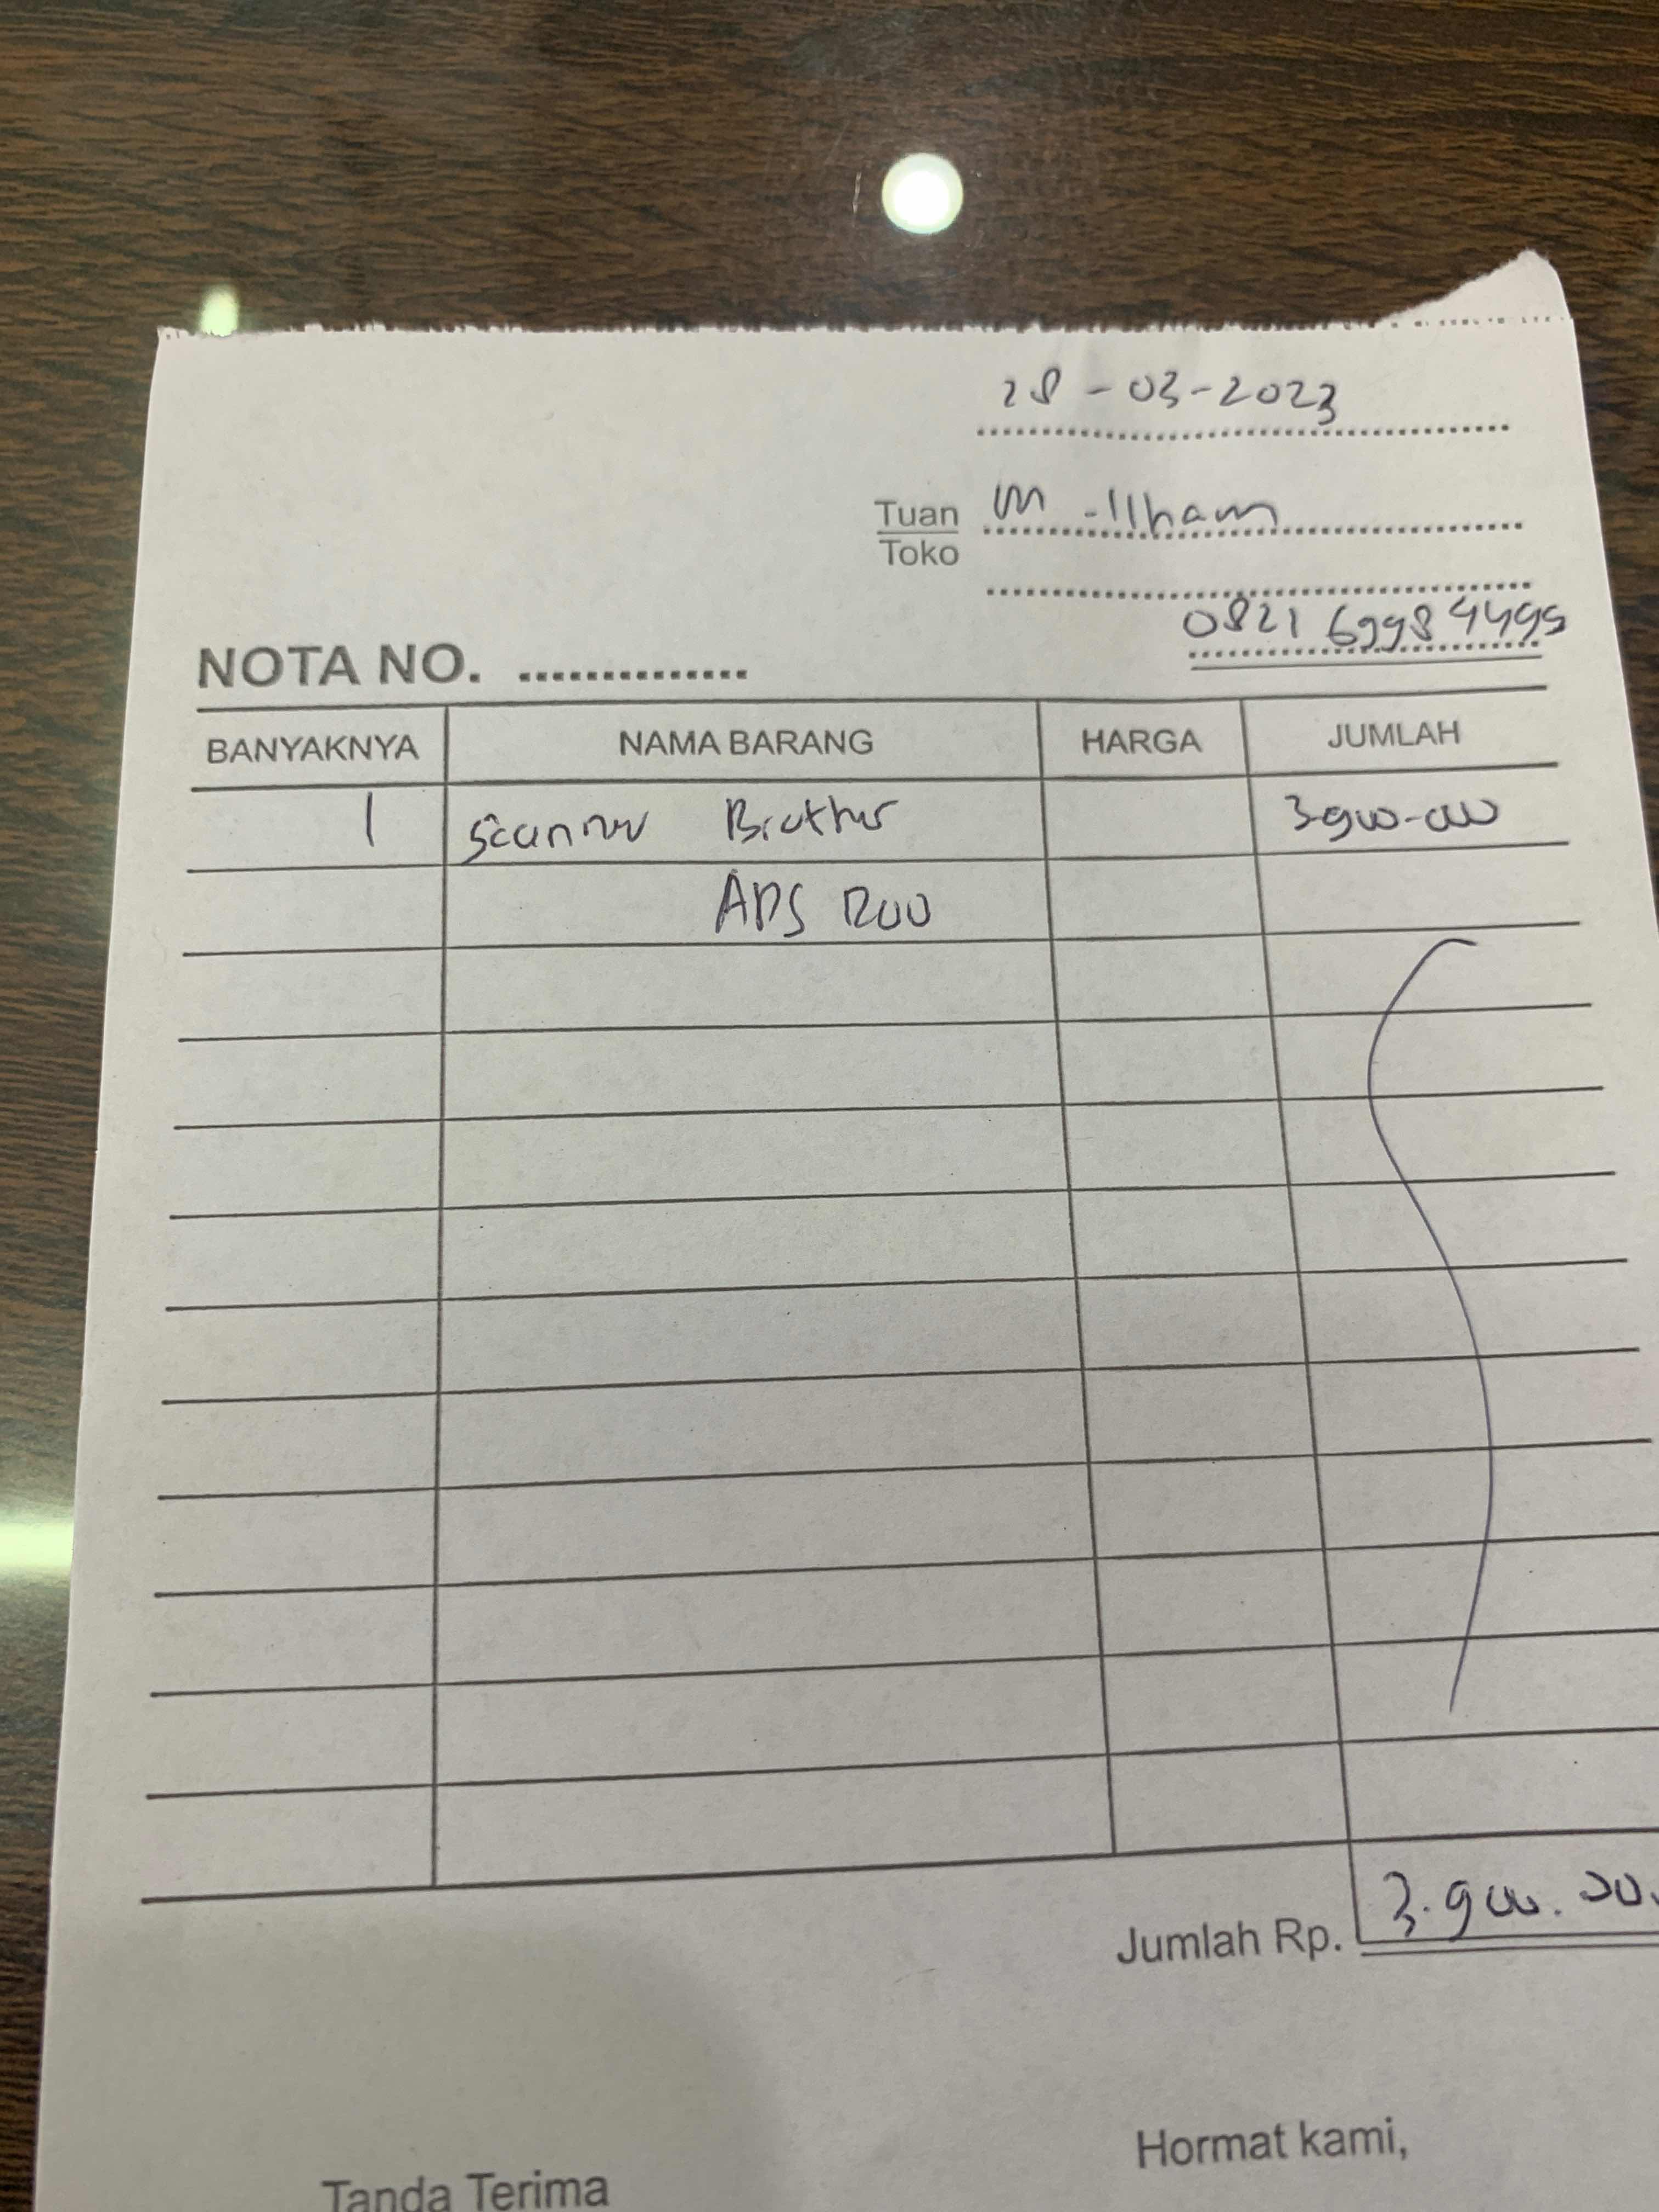 28-03-2023
Tuan M. Ilham
Toko
0821 6998 4495
NOTA NO. ..............
BANYAKNYA NAMA BARANG HARGA JUMLAH
1 Scanner Brother 3.900.000
ADS 1200
Jumlah Rp. 3.900.00
Hormat kami,
Tanda Terima